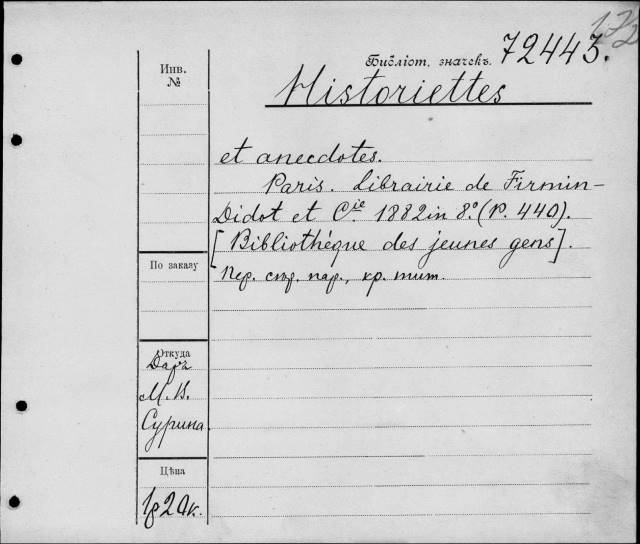 172
Библіот. значекъ 72443.
Инв.
№
Historiettes
et anecdotes.
Paris. Librairie de Firmin-
Didot et Cie. 1882 in 8º. (P. 440).
[Bibliothéque des jeunes gens].
Пер. стр. пар., кр. тит.
По заказу
Откуда
Даръ
М. В.
Сурина.
Цѣна